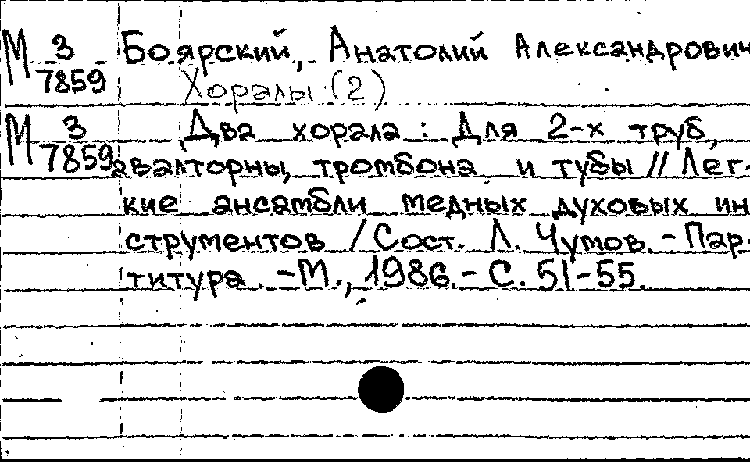 М 3 Боярский, Анатолий Александрович
7859 Хоралы (2)
М 3 Два хорала : Для 2-х труб,
7859 валторны, тромбона и тубы // Лег-
кие ансамбли медных духовых ин
струментов / Сост. Л. Чумов. - Пар-
титура. - М., 1986. - С. 51-55.